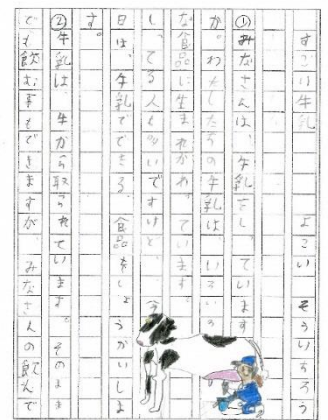 すごい牛乳　よこい　そういちろう
①みなさんは、牛乳をしっています
か。わたしたちの牛乳は、いろいろ
な食品に生まれかわっています。
しってる人も多いですけど、今
日は、牛乳でできる、食品をしょうかいしま
す。
②牛乳は、牛から取られています。そのまま
でも飲む事もできますが、みなさんの飲んで